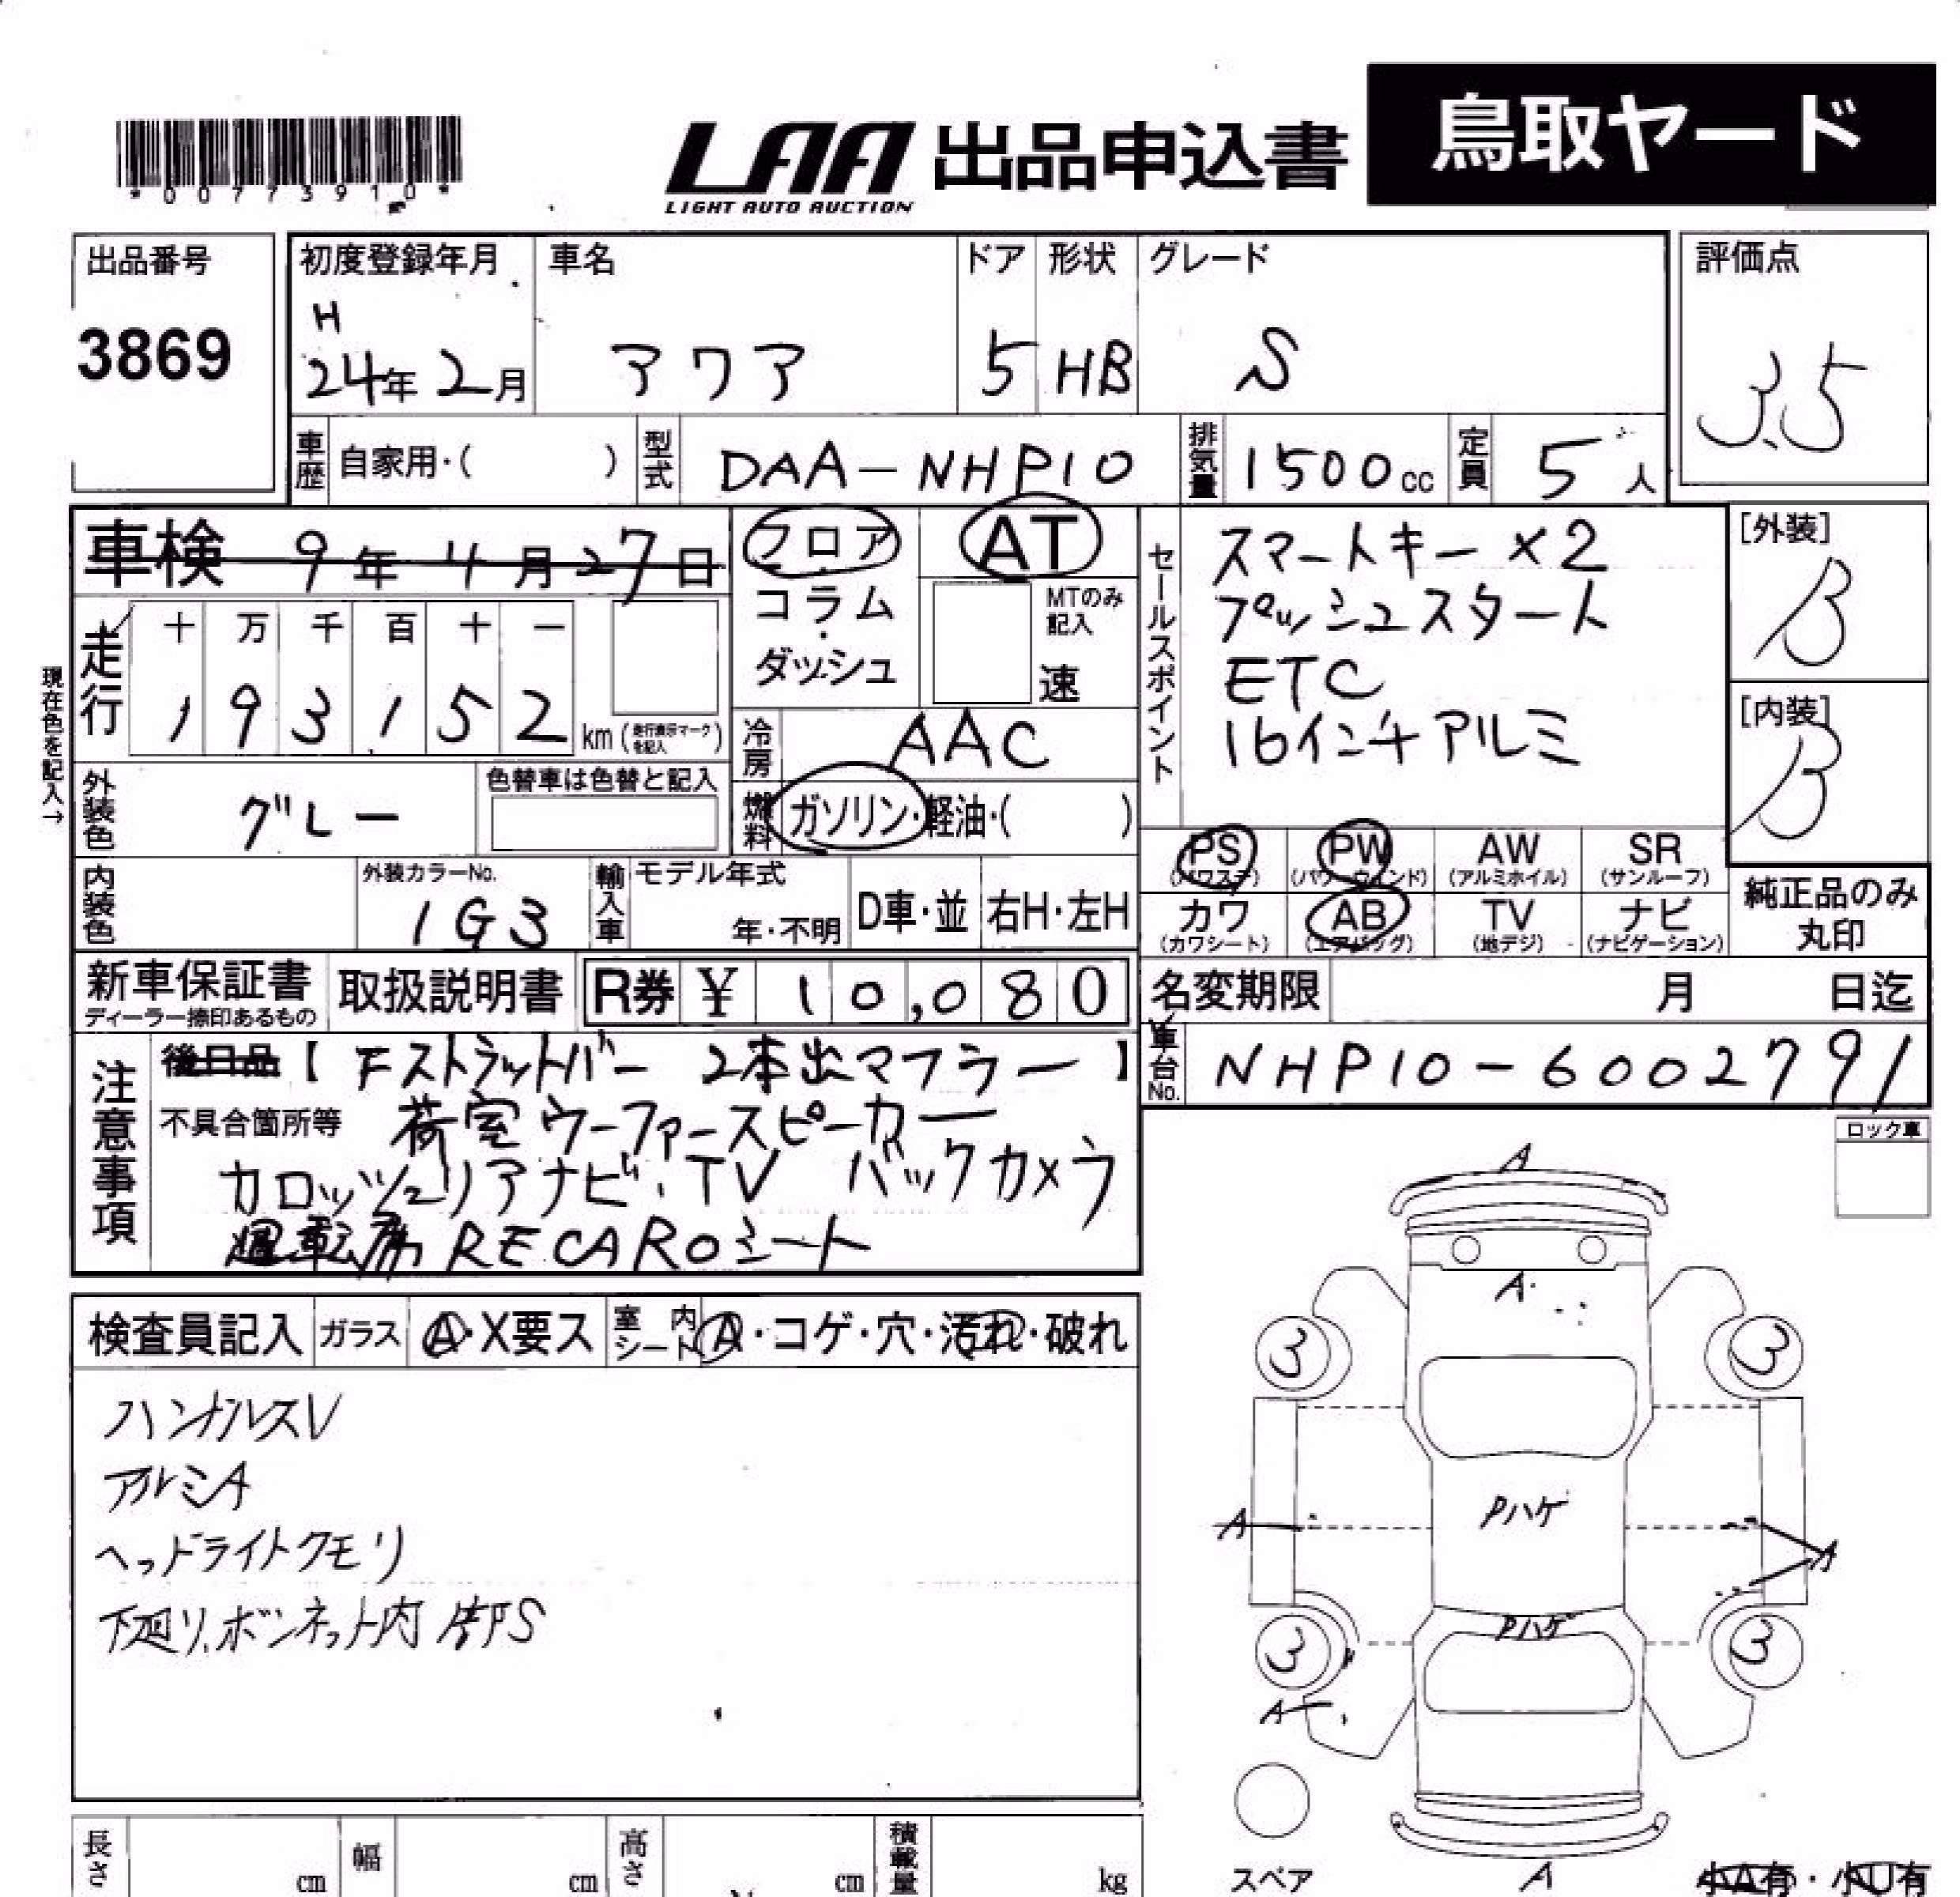 *00773910*
LAA 出品申込書 鳥取ヤード
LIGHT AUTO AUCTION
出品番号 初度登録年月 車名 ドア 形状 グレード 評価点
3869 H 24年 2月 アクア 5 HB S 3.5
車歴 自家用・( ) 型式 DAA-NHP10 排気量 1500cc 定員 5人
車検 9年 4月 27日
フロア
コラム
・
ダッシュ
AT
MTのみ記入
速
現在色を記入→
走行 十 万 千 百 十 一
1 9 3 1 5 2 km (走行表示マークを記入)
冷房 AAC
外装色 グレー 色替車は色替と記入
燃料 ガソリン・軽油・( )
内装色 外装カラーNo. 1G3 輸入車 モデル年式 年・不明 D車・並 右H・左H
セールスポイント
スマートキー×2
プッシュスタート
ETC
16インチアルミ
[外装] B
[内装] B
PS (パワステ) PW (パワーウィンド) AW (アルミホイル) SR (サンルーフ)
カワ (カワシート) AB (エアバッグ) TV (地デジ) ナビ (ナビゲーション)
純正品のみ
丸印
新車保証書 取扱説明書 R券 ¥ 10,080
ディーラー捺印あるもの
名変期限 月 日迄
車台No. NHP10-6002791
注意事項
後日品【 Fストラットバー 2本出マフラー 】
不具合箇所等 荷室ウーファースピーカー
カロッツェリアナビ・TV バックカメラ
運転席 RECAROシート
ロック車
検査員記入 ガラス A・X要ス 室内シート A・コゲ・穴・汚れ・破れ
ハンドルスレ
アルミA
ヘッドライトクモリ
下廻り、ボンネット内 S
A
A
3 3
Pハゲ
A A
Pハゲ
3 3
A
スペア
A
小A有・小U有
長さ cm 幅 cm 高さ cm 積載量 kg